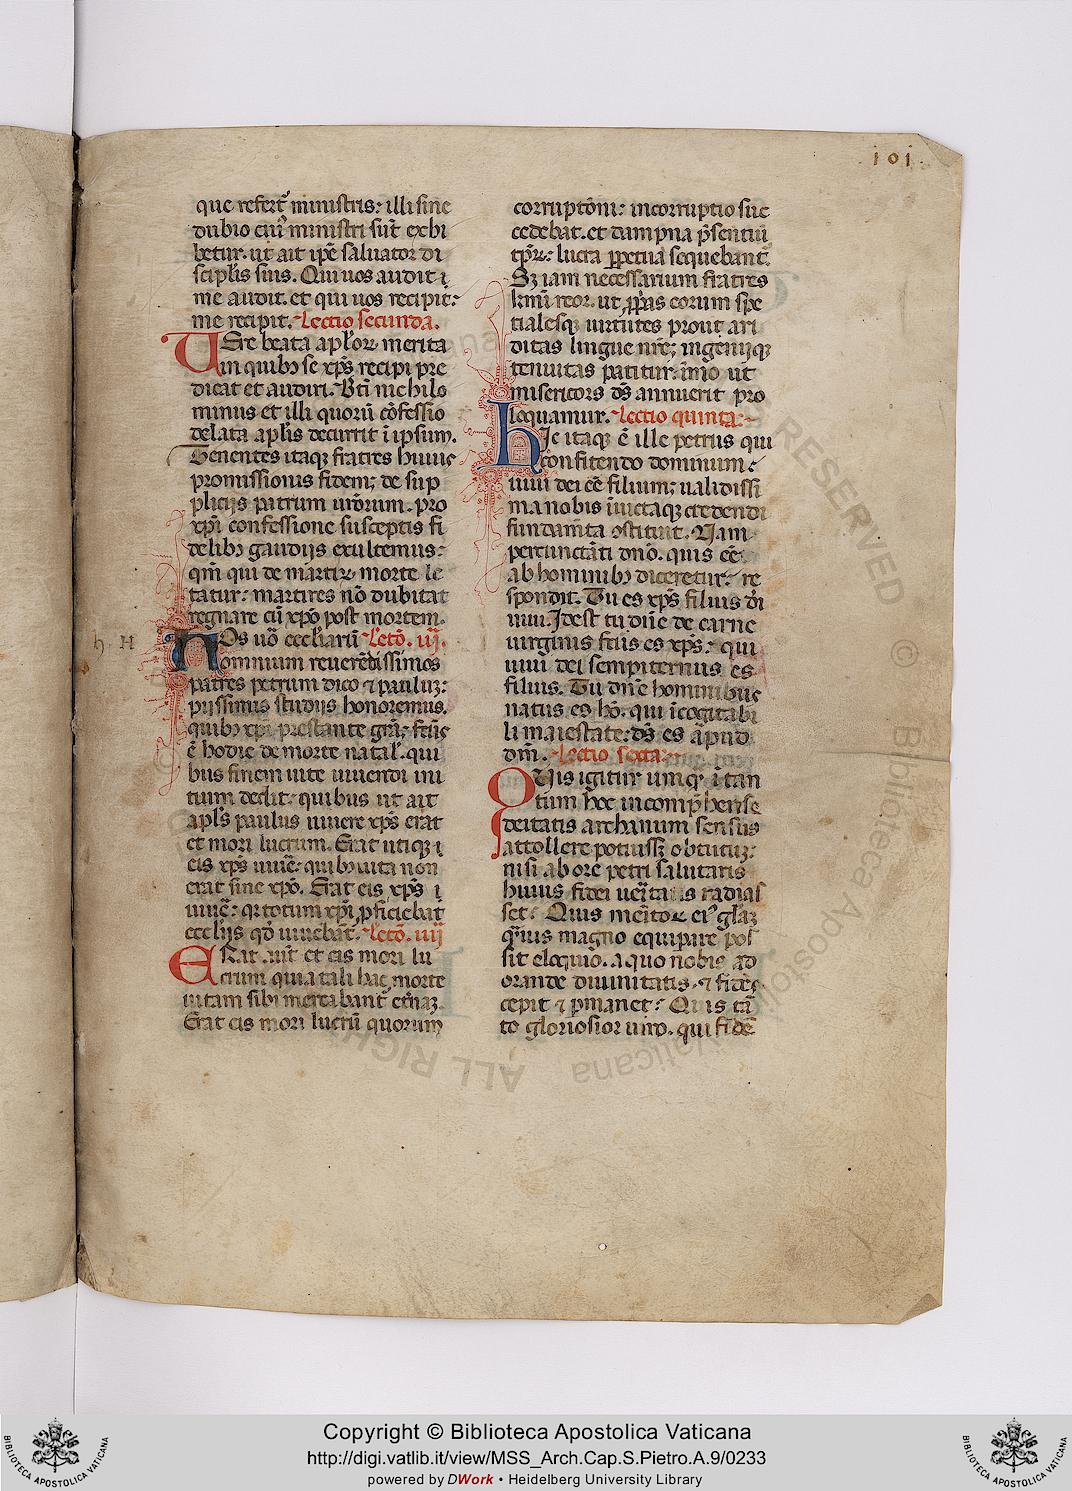 101
que refert᷑ ministris: illi sine
dubio cui᷒ ministri sūt exhi
betur. ut ait ip̄e saluator di
scipl̄is suis. Qui uos audit i
me audit. et qui uos recipit:
me recipit. Lectio secunda.
Uere beata ap̄lor merita
in quib; se xp̄s recipi pre
dicat et audiri. Bt̄i nichilo
minus et illi quorū cōfessio
delata ap̄lis decurrit ī ipsum.
Tenentes itaq; fratres huius
promissionis fidem; de sup
pliciis patrum ur̄orum. pro
xp̄i confessione susceptis fi
delib; gaudiis exultemus:
qm̄ qui de martir morte le
tatur: martires nō dubitat
regnare cū xp̄o post mortem.
h. H
Nos uō eccliarū Lectō. iii.
omnium reuerēdissimos
patres petrum dico ⁊ paulū:
piissimis studiis honoremus.
quib; xp̄i prestante gr̄a: fcūs
ē hodie de morte natal̄. qui
bus finem uite uiuendi ini
tium dedit: quibus ut ait
apl̄s paulus uiuere xp̄s erat
et mori lucrum. Erat utiq; i
eis xp̄s uiuē: quib; uita non
erat sine xp̄o. Erat eis xp̄s i
uiuē: qr totum xp̄i p̄ficiebat
eccl̄iis qđ uiuebāt. Lectō. iiii
Erat aut̄ et eis mori lu
crum quia tali hac morte
uitam sibi mercabant̄ et̄nā.
Erat eis mori lucrū quorum
corruptōni: incorruptio suc
cedebat. et dampna p̄sentiū
tp̄r: lucra p̱petua sequebant̄.
Sꝫ iam necessarium fratres
kmī reor. ut p̱p̱as eorum spe
tialesq; uirtutes prout ari
ditas lingue nr̄e; ingeniiq;
tenuitas patitur: imo ut
misericors ds̄ annuerit pro
loquamur. Lectio quinta.
Hic itaq; ē ille petrus qui
confitendo dominum
uiui dei cē filium; ualidissi
ma nobis ī uictaq; credendi
fundam̄ta ostituit. Nam
percunctāti dn̄o. quis cē
ab hominib; diceretur: re
spondit. Tu es xp̄s filius d̄i
uiui. Idest tu dn̄e de carne
uirginis fc̄us es xp̄s: qui
uiui dei sempiternus es
filius. Tu dn̄e hominibus
natus es hō. qui īcogitabi
li maiestate: ds̄ es āpud
dm̄. Lectio sexta.
Quis igitur unq̄ i tan
tum hec incomp̄hense
deitatis archanum sensus
attollere potuissꝫ obtutū:
nisi ab ore petri salutaris
huius fidei ueritatis radias
set: Quis meritor ei᷒ gl̄aꝫ
qiuis magno equipare pos
sit eloquio. a quo nobis ad
orande diuinitatis. ⁊ fides
cepit ⁊ p̱manet: Quis tā
to gloriosior uiro. qui fidē
Copyright © Biblioteca Apostolica Vaticana
http://digi.vatlib.it/view/MSS_Arch.Cap.S.Pietro.A.9/0233
powered by DWork • Heidelberg University Library